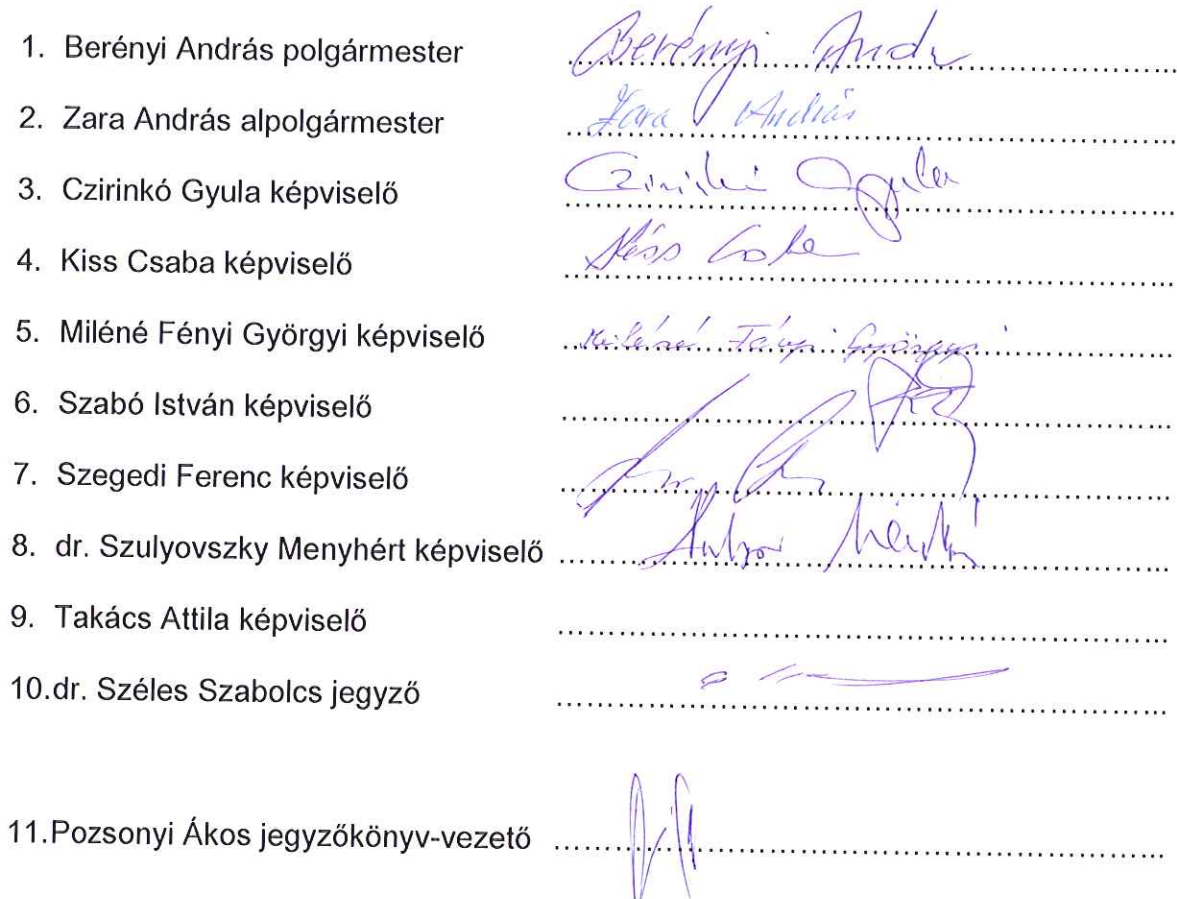 1. Berényi András polgármester Berényi
2. Zara András alpolgármester Zara András
3. Czirinkó Gyula képviselő Gyula
4. Kiss Csaba képviselő Kiss Csaba
5. Miléné Fényi Györgyi képviselő Miléné Fényi Györgyi
6. Szabó István képviselő
7. Szegedi Ferenc képviselő
8. dr. Szulyovszky Menyhért képviselő
9. Takács Attila képviselő
10.dr. Széles Szabolcs jegyző
11.Pozsonyi Ákos jegyzőkönyv-vezető